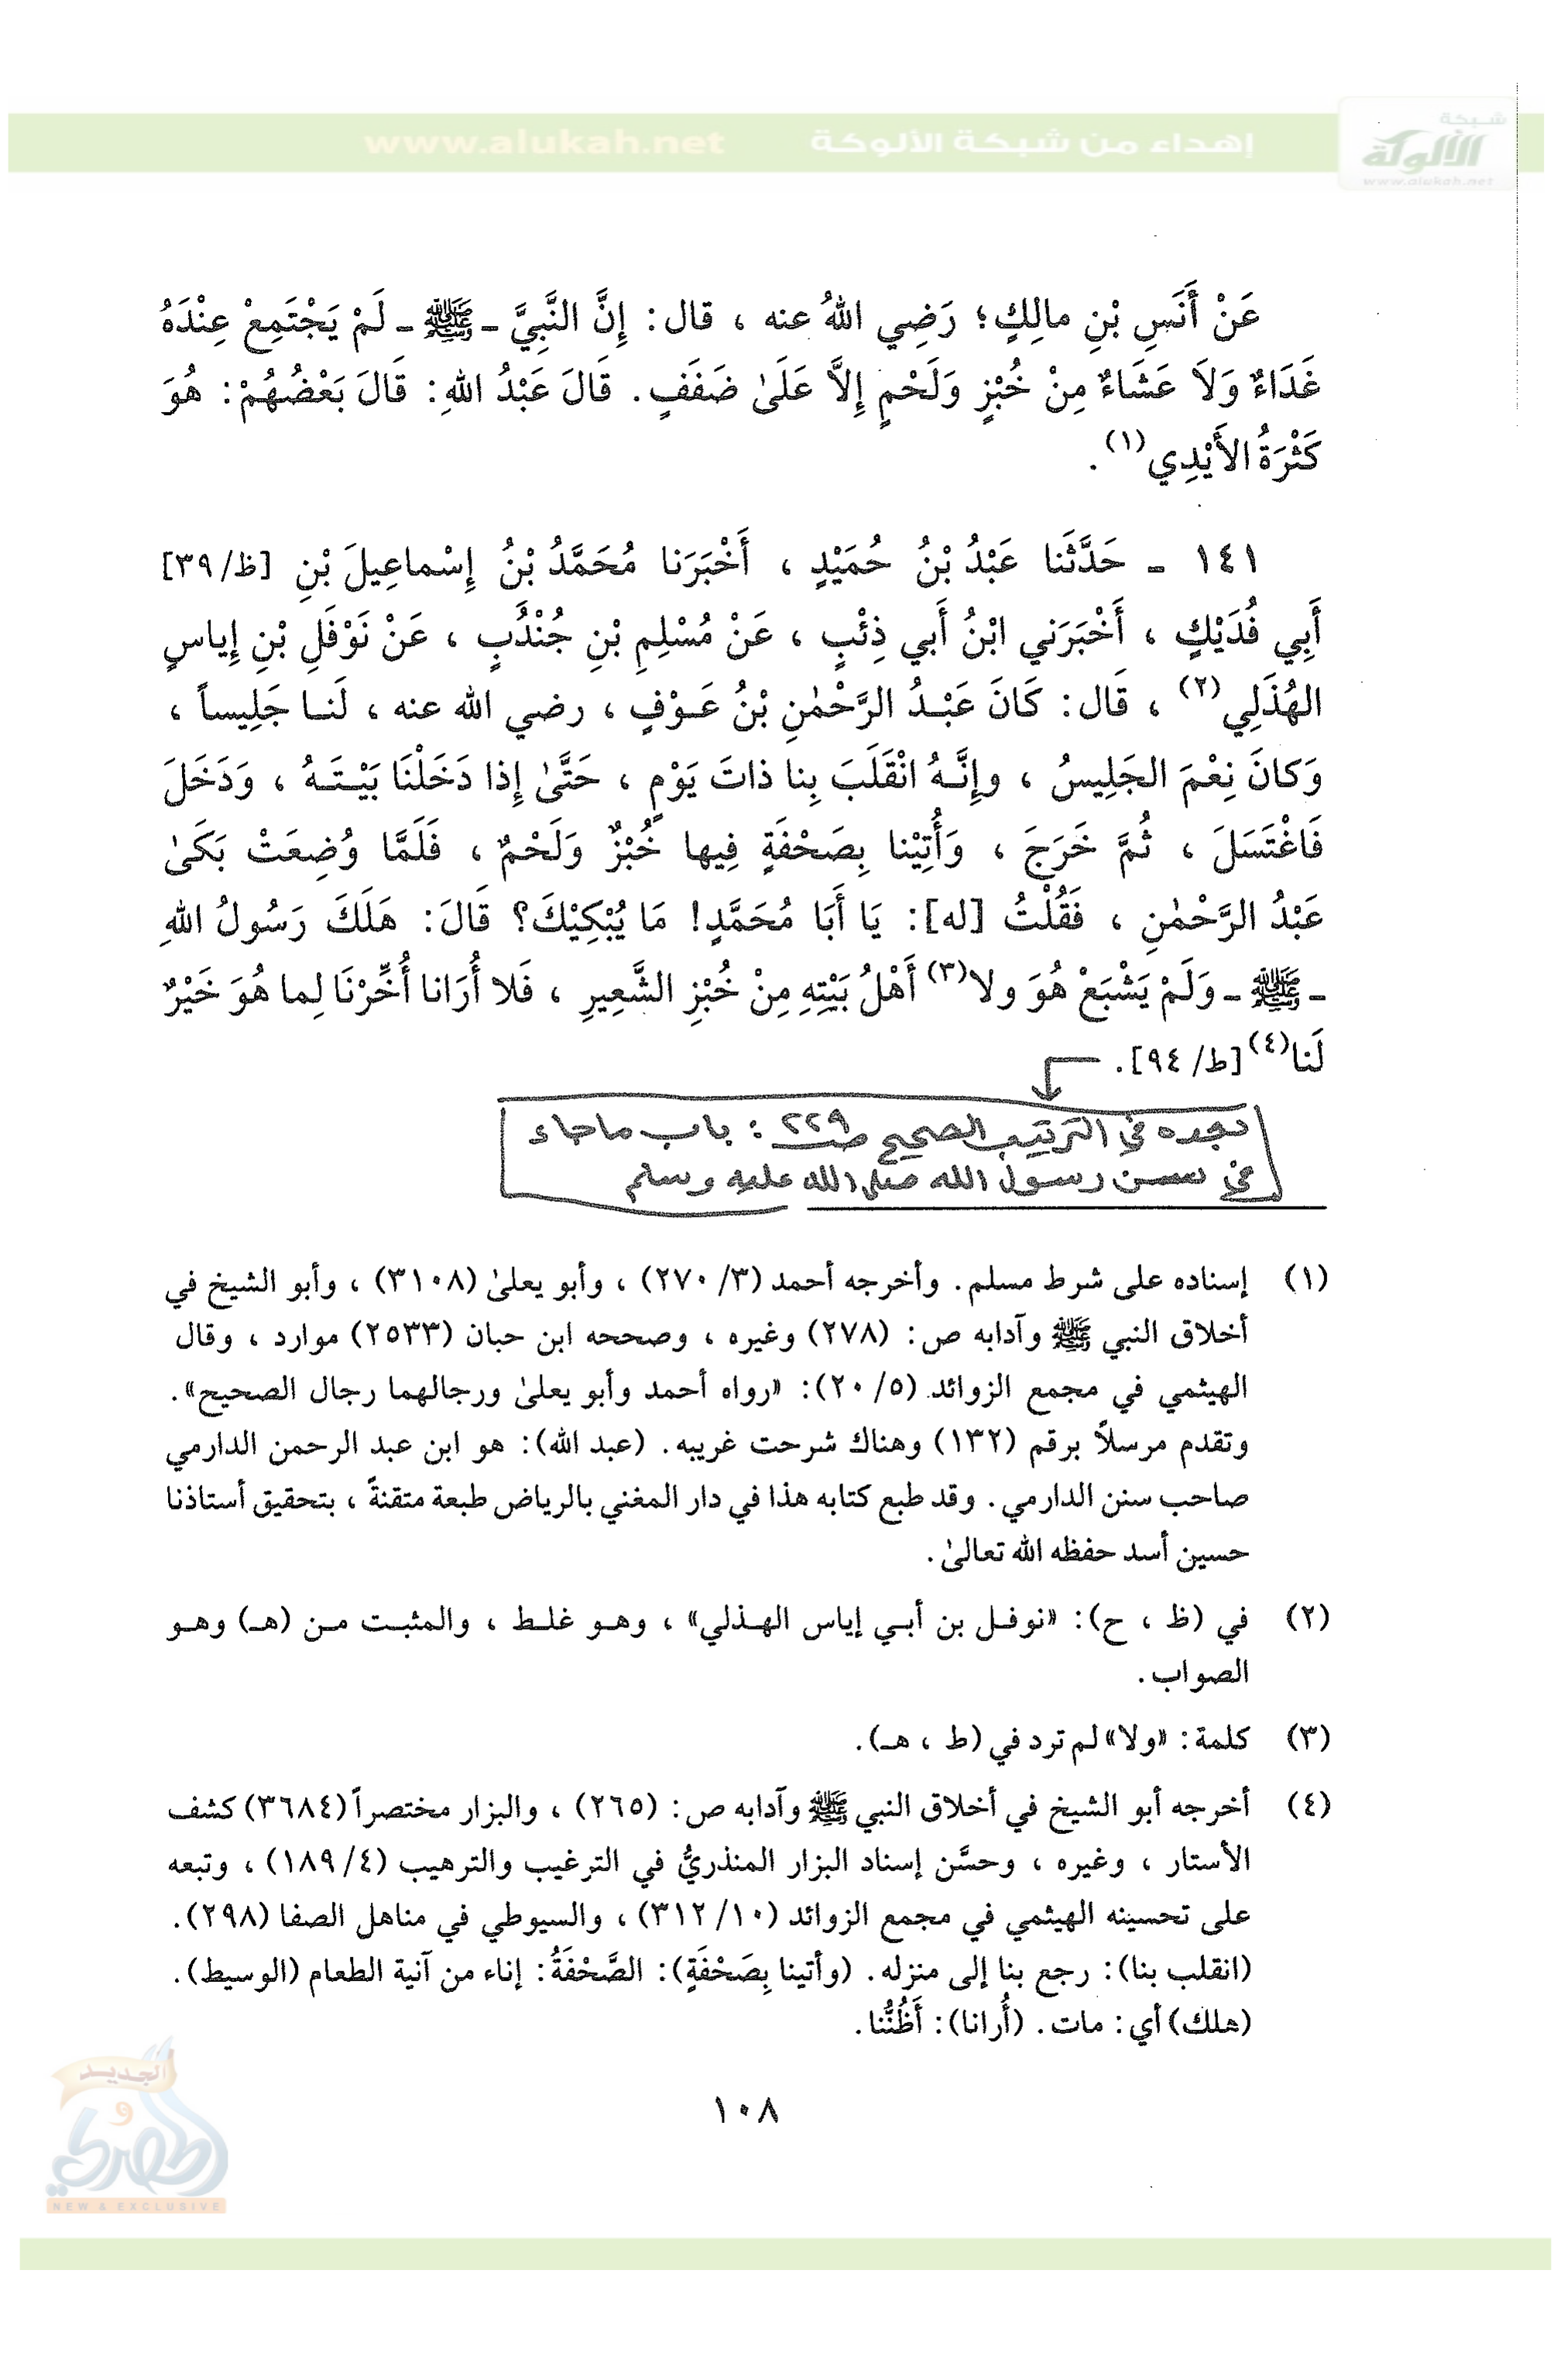 شبكة
الألوكة
www.alukah.net
إهداء من شبكة الألوكة www.alukah.net
عَنْ أَنَسِ بْنِ مالِكٍ؛ رَضِي اللهُ عنه ، قال: إِنَّ النَّبِيَّ ـ ﷺ ـ لَمْ يَجْتَمِعْ عِنْدَهُ
غَدَاءٌ وَلاَ عَشَاءٌ مِنْ خُبْزٍ وَلَحْمٍ إِلاَّ عَلَىٰ ضَفَفٍ. قَالَ عَبْدُ اللهِ: قَالَ بَعْضُهُمْ: هُوَ
كَثْرَةُ الأَيْدِي(١).
١٤١ ـ حَدَّثَنا عَبْدُ بْنُ حُمَيْدٍ ، أَخْبَرَنا مُحَمَّدُ بْنُ إِسْماعِيلَ بْنِ [ظ/٣٩]
أَبِي فُدَيْكٍ ، أَخْبَرَني ابْنُ أَبي ذِئْبٍ ، عَنْ مُسْلِمِ بْنِ جُنْدُبٍ ، عَنْ نَوْفَلِ بْنِ إِياسٍ
الهُذَلِي(٢) ، قَال: كَانَ عَبْـدُ الرَّحْمٰنِ بْنُ عَـوْفٍ ، رضي الله عنه ، لَنـا جَلِيساً ،
وَكانَ نِعْمَ الجَلِيسُ ، وإِنَّـهُ انْقَلَبَ بِنا ذاتَ يَوْمٍ ، حَتَّىٰ إِذا دَخَلْنَا بَيْـتَـهُ ، وَدَخَلَ
فَاغْتَسَلَ ، ثُمَّ خَرَجَ ، وَأُتِيْنا بِصَحْفَةٍ فِيها خُبْزٌ وَلَحْمٌ ، فَلَمَّا وُضِعَتْ بَكَىٰ
عَبْدُ الرَّحْمٰنِ ، فَقُلْتُ [له]: يَا أَبَا مُحَمَّدٍ! مَا يُبْكِيْكَ؟ قَالَ: هَلَكَ رَسُولُ اللهِ
ـ ﷺ ـ وَلَمْ يَشْبَعْ هُوَ ولا(٣) أَهْلُ بَيْتِهِ مِنْ خُبْزِ الشَّعِيرِ ، فَلا أُرَانا أُخِّرْنَا لِما هُوَ خَيْرٌ
لَنا(٤) [ط/٩٤].
تجده في الترتيب الصحيح صـ ٢٢٩ : باب ما جاء
في سـن رسول الله صلى الله عليه وسلم
(١) إسناده على شرط مسلم. وأخرجه أحمد (٣/ ٢٧٠) ، وأبو يعلىٰ (٣١٠٨) ، وأبو الشيخ في
أخلاق النبي ﷺ وآدابه ص: (٢٧٨) وغيره ، وصححه ابن حبان (٢٥٣٣) موارد ، وقال
الهيثمي في مجمع الزوائد (٥/ ٢٠): «رواه أحمد وأبو يعلىٰ ورجالهما رجال الصحيح».
وتقدم مرسلاً برقم (١٣٢) وهناك شرحت غريبه. (عبد الله): هو ابن عبد الرحمن الدارمي
صاحب سنن الدارمي. وقد طبع كتابه هذا في دار المغني بالرياض طبعة متقنةً ، بتحقيق أستاذنا
حسين أسد حفظه الله تعالىٰ.
(٢) في (ظ ، ح): «نوفـل بن أبـي إياس الهـذلي» ، وهـو غلـط ، والمثبـت مـن (هـ) وهـو
الصواب.
(٣) كلمة: «ولا» لم ترد في (ط ، هـ).
(٤) أخرجه أبو الشيخ في أخلاق النبي ﷺ وآدابه ص: (٢٦٥) ، والبزار مختصراً (٣٦٨٤) كشف
الأستار ، وغيره ، وحسَّن إسناد البزار المنذريُّ في الترغيب والترهيب (٤/ ١٨٩) ، وتبعه
على تحسينه الهيثمي في مجمع الزوائد (١٠/ ٣١٢) ، والسيوطي في مناهل الصفا (٢٩٨).
(انقلب بنا): رجع بنا إلى منزله. (وأتينا بِصَحْفَةٍ): الصَّحْفَةُ: إناء من آنية الطعام (الوسيط).
(هلك) أي: مات. (أُرانا): أَظُنُّنا.
١٠٨
الجديد
و
الحصري
NEW & EXCLUSIVE